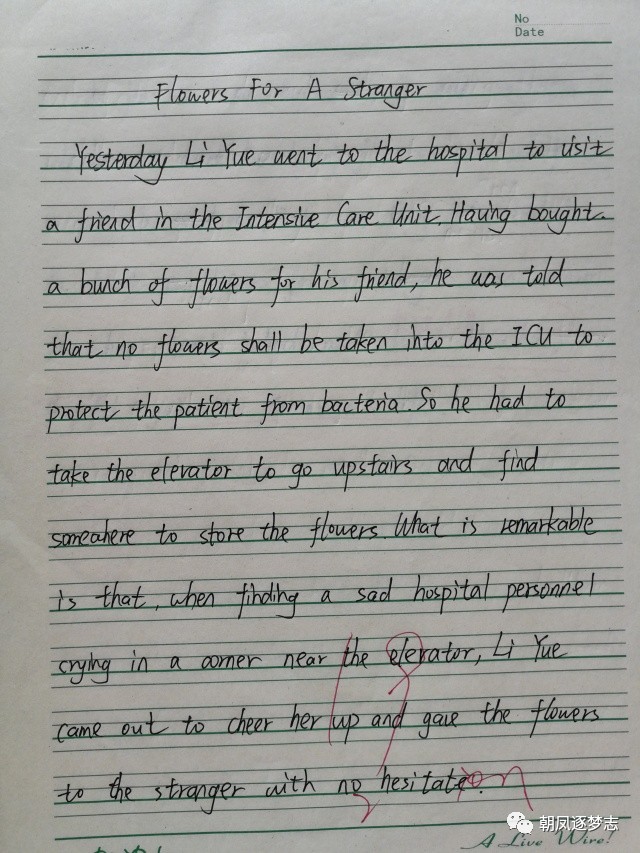 No
Date
Flowers For A Stranger
Yesterday Li Yue went to the hospital to visit
a friend in the Intensive Care Unit. Having bought
a bunch of flowers for his friend, he was told
that no flowers shall be taken into the ICU to
protect the patient from bacteria. So he had to
take the elevator to go upstairs and find
somewhere to store the flowers. What is remarkable
is that, when finding a sad hospital personnel
crying in a corner near the elevator, Li Yue
came out to cheer her up and gave the flowers
to the stranger with no hesitate.
朝凤逐梦志
A Live Wire!